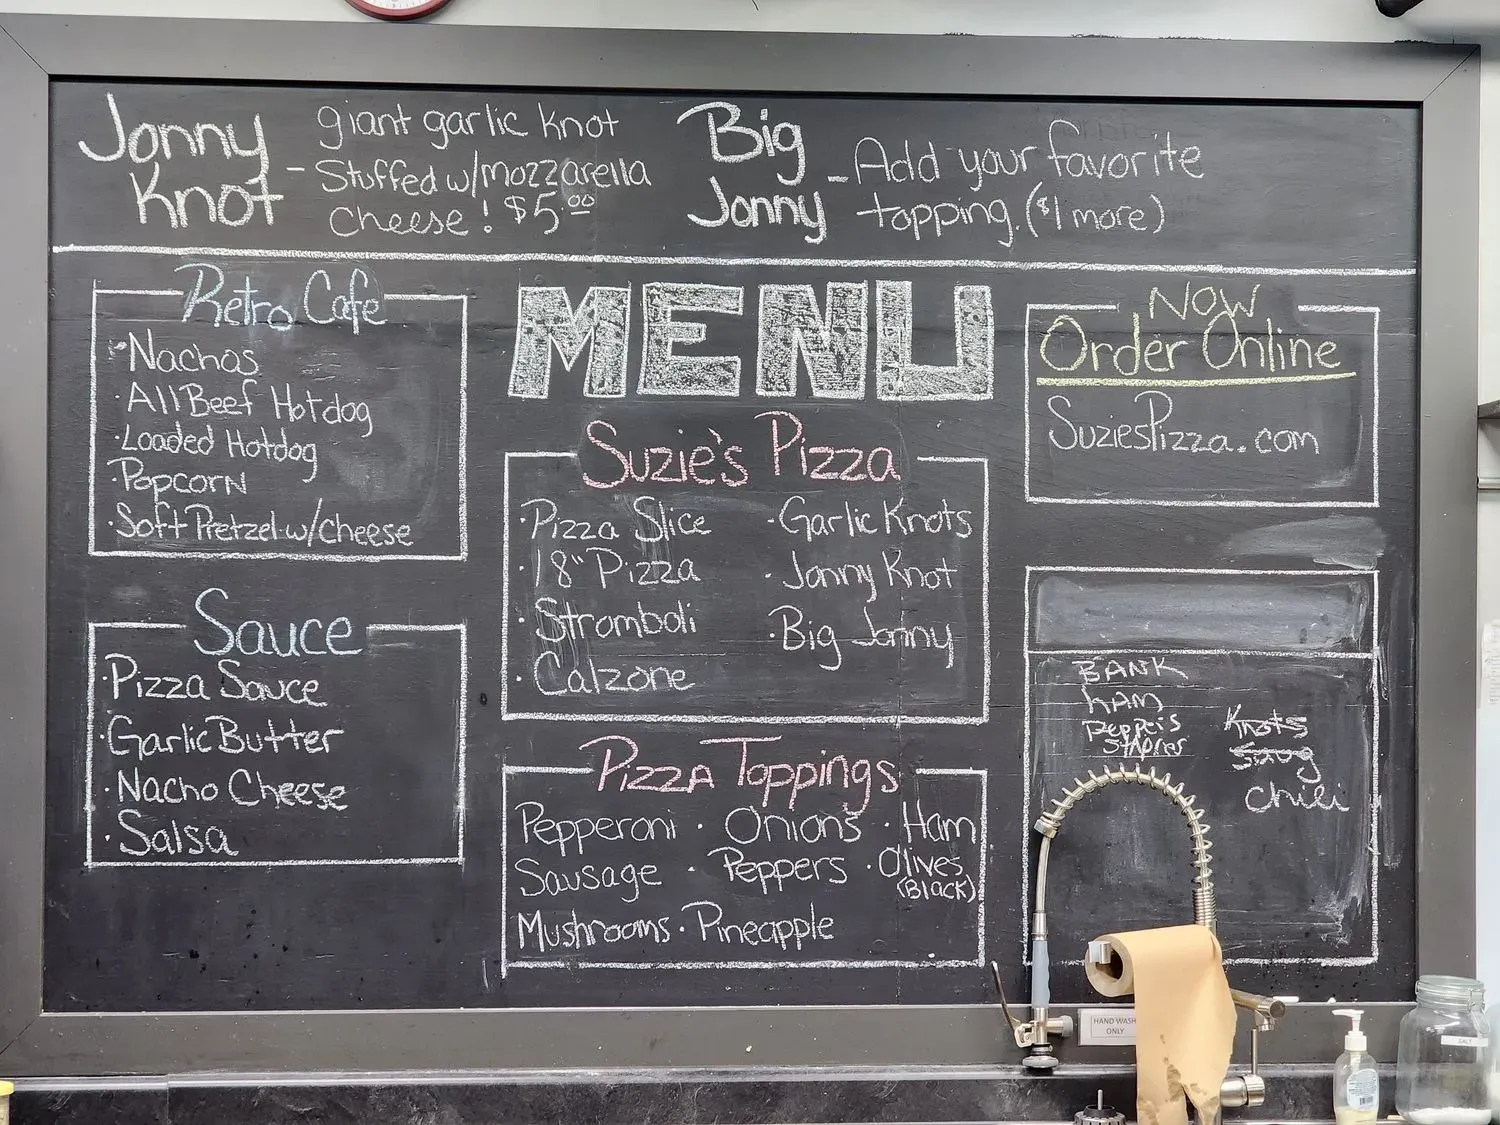 Jonny
Knot
- giant garlic knot
Stuffed w/mozzarella
cheese! $5.00
Big
Jonny
- Add your favorite
topping. ($1 more)
Retro Cafe
· Nachos
· All Beef Hotdog
· Loaded Hotdog
· Popcorn
· Soft Pretzel w/cheese
Sauce
· Pizza Sauce
· Garlic Butter
· Nacho Cheese
· Salsa
MENU
Suzie's Pizza
· Pizza Slice
· 18" Pizza
· Stromboli
· Calzone
· Garlic Knots
· Jonny Knot
· Big Jonny
Pizza Toppings
Pepperoni · Onions · Ham
Sausage · Peppers · Olives
(Black)
Mushrooms · Pineapple
Now
Order Online
SuziesPizza.com
BANK
HAM
Knots
chili
HAND WASH
ONLY
SALT